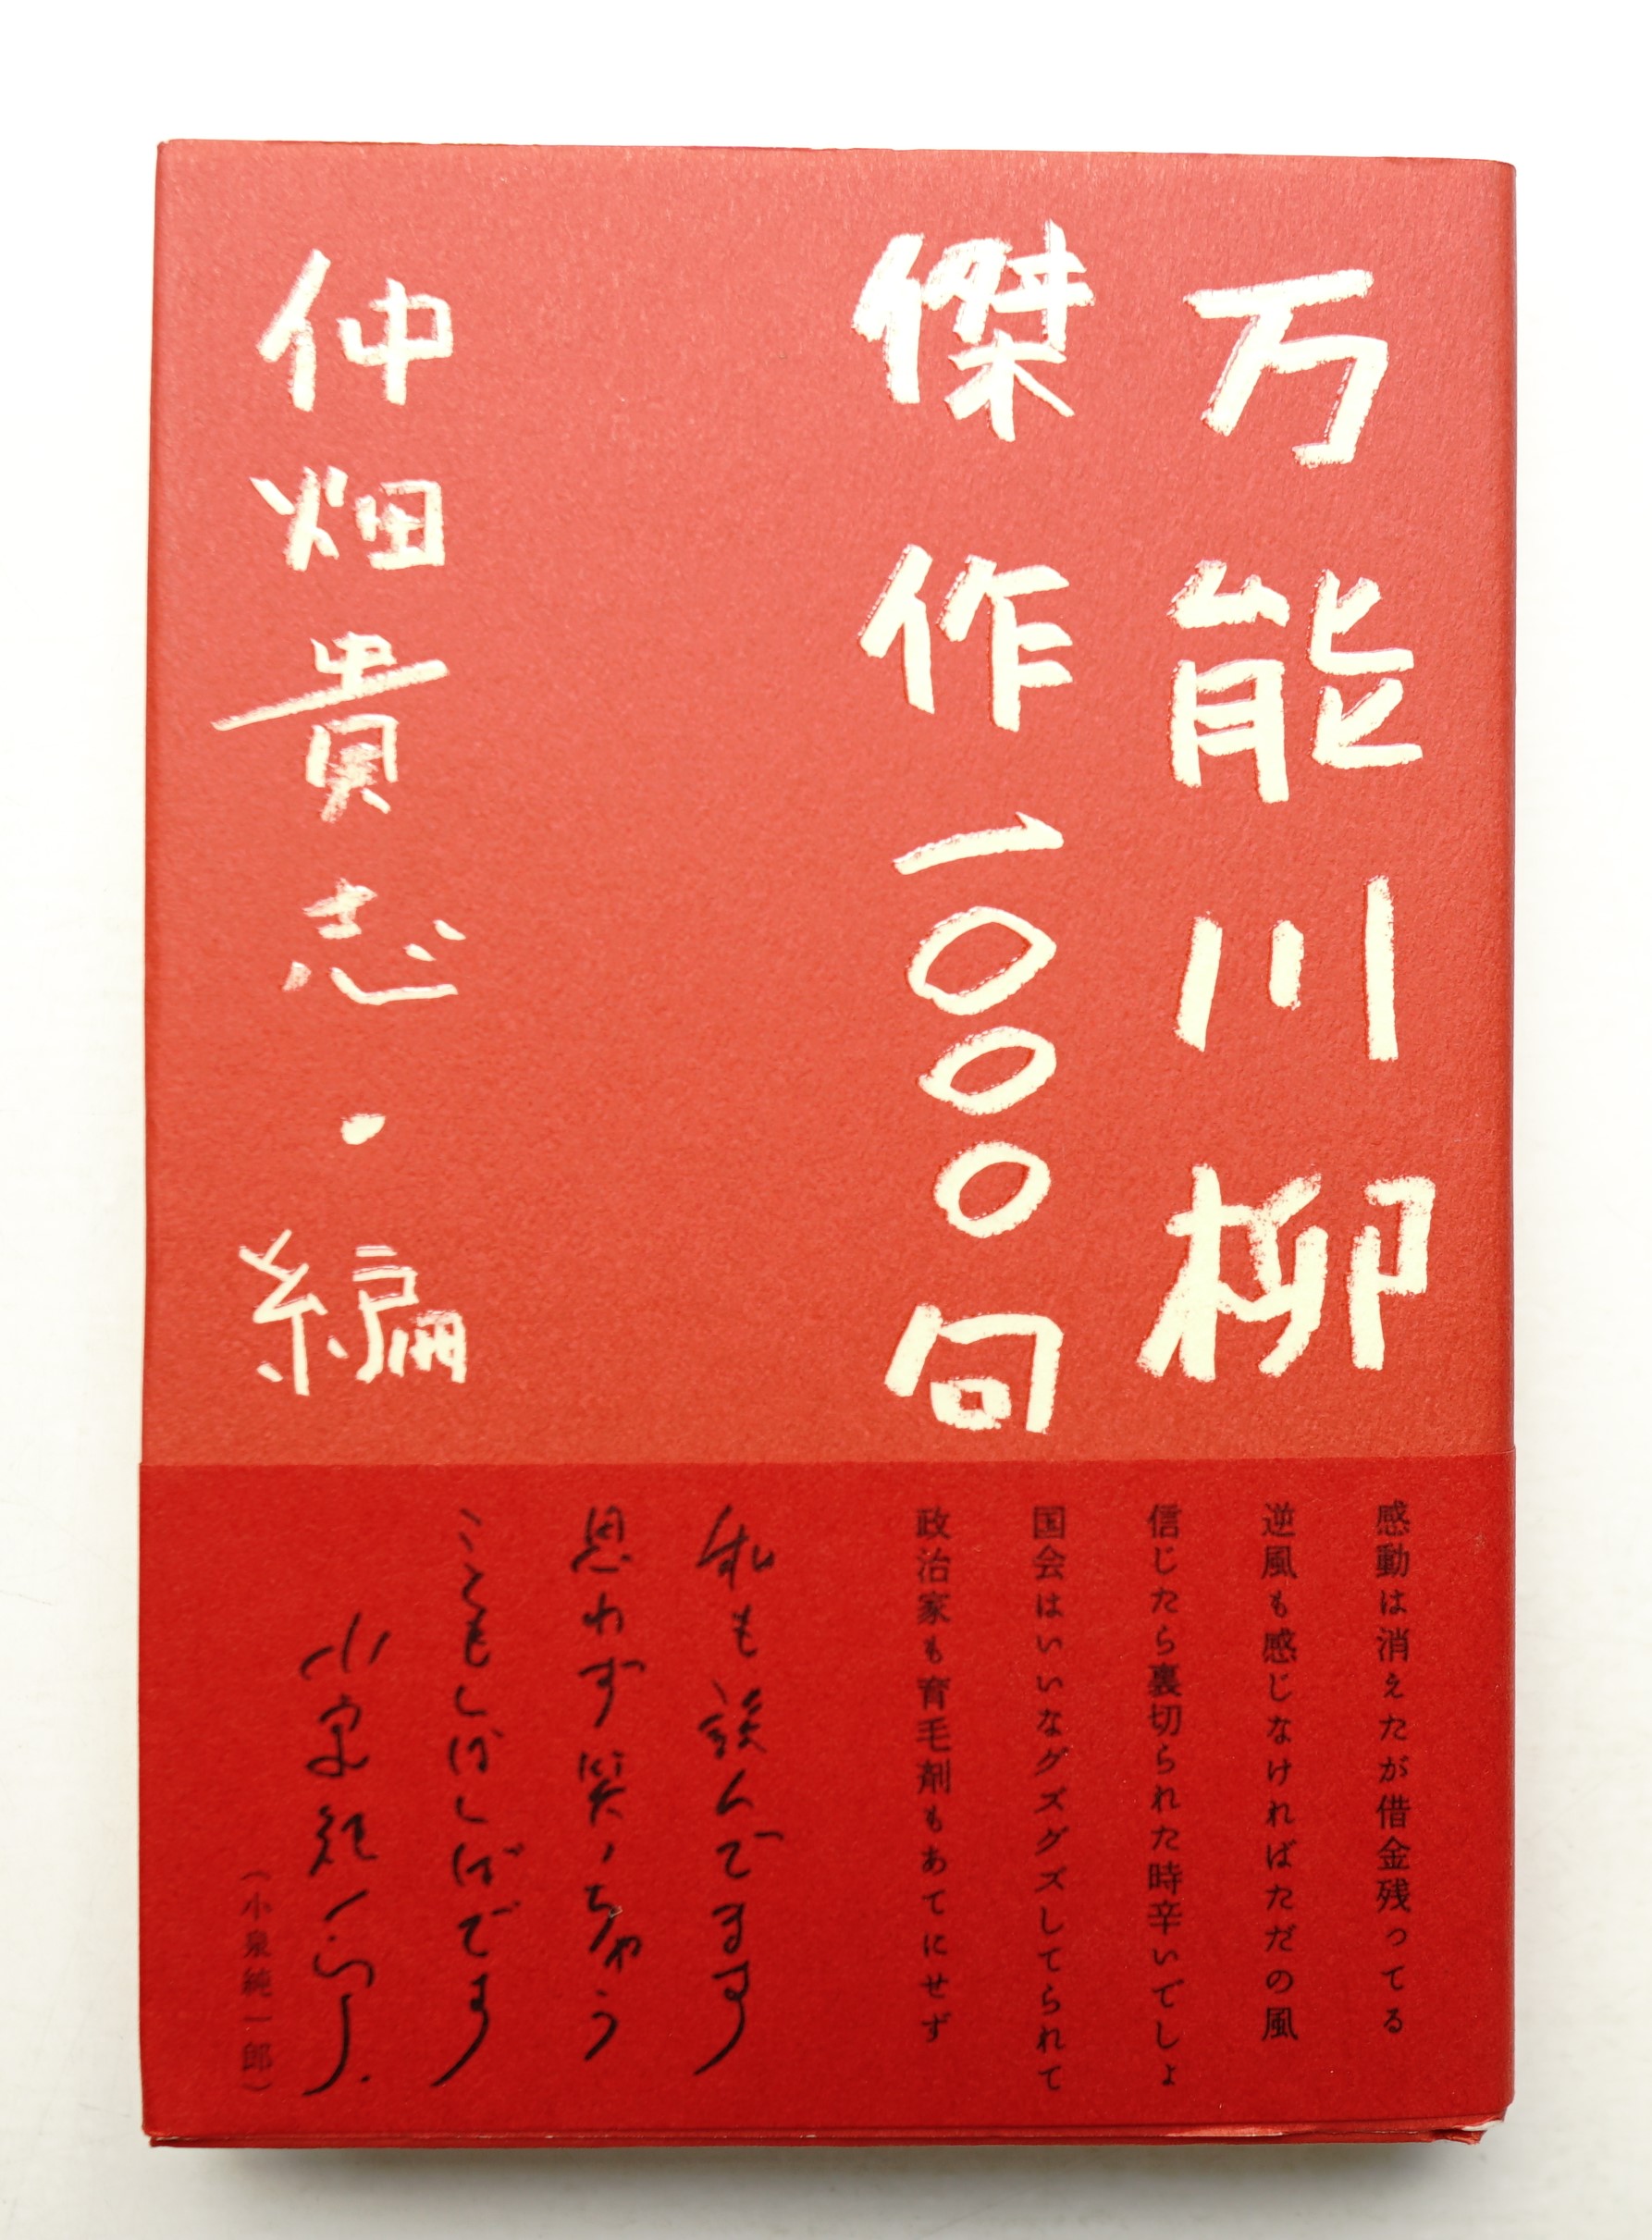 万能川柳
傑作一〇〇〇句
仲畑貴志・編
感動は消えたが借金残ってる
逆風も感じなければただの風
信じたら裏切られた時辛いでしょ
国会はいいなグズグズしてられて
政治家も育毛剤もあてにせず
私も読んでます
思わず笑っちゃう
こともしばしばです
小泉純一郎
（小泉純一郎）